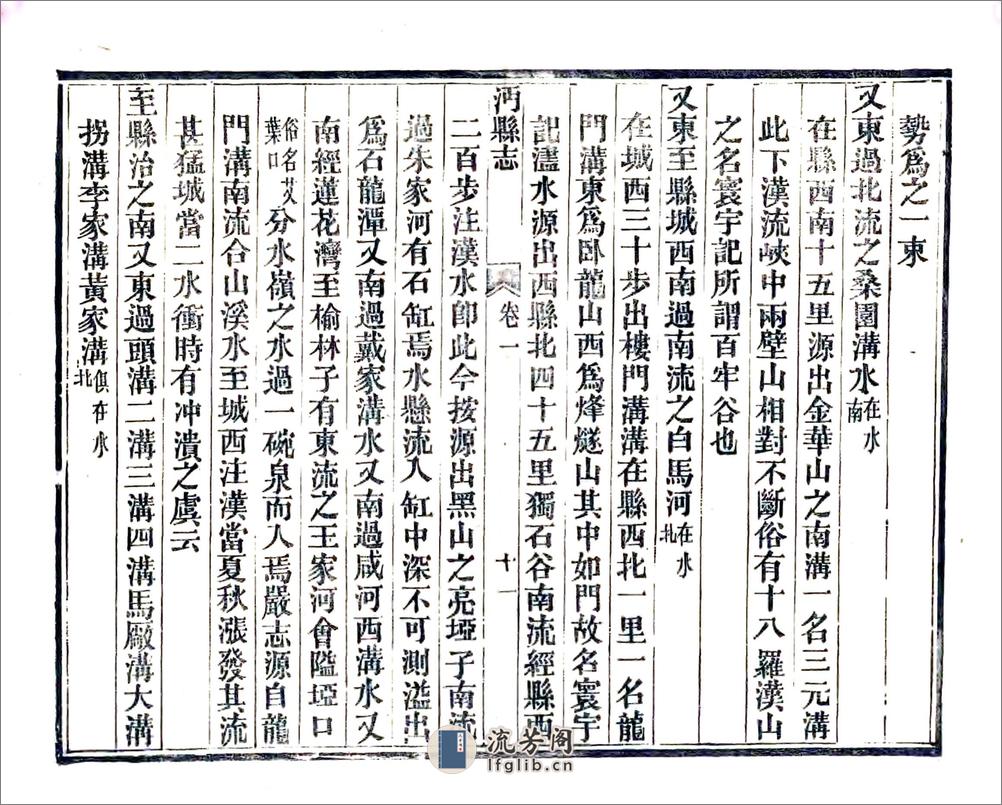 勢爲之一束
又東過北流之桑園溝水在水南
在縣西南十五里源出金華山之南溝一名三元溝
此下漢流峽中兩壁山相對不斷俗有十八羅漢山
之名寰宇記所謂百牢谷也
又東至縣城西南過南流之白馬河在水北
在城西三十步出樓門溝溝在縣西北一里一名龍
門溝東爲卧龍山西爲烽燧山其中如門故名寰宇
記瀘水源出西縣北四十五里獨石谷南流經縣西
沔縣志 卷一 十一
二百步注漢水卽此今按源出黑山之亮埡子南流
過朱家河有石缸焉水懸流入缸中深不可測溢出
爲石龍潭又南過戴家溝水又南過咸河西溝水又
南經蓮花灣至榆林子有東流之王家河會隘埡口
俗名艾葉口分水嶺之水過一碗泉而入焉嚴志源自龍
門溝南流合山溪水至城西注漢當夏秋漲發其流
甚猛城當二水衝時有冲潰之虞云
至縣治之南又東過頭溝二溝三溝四溝馬厰溝大溝
拐溝李家溝黃家溝俱在水北
流芳阁
lfglib.cn